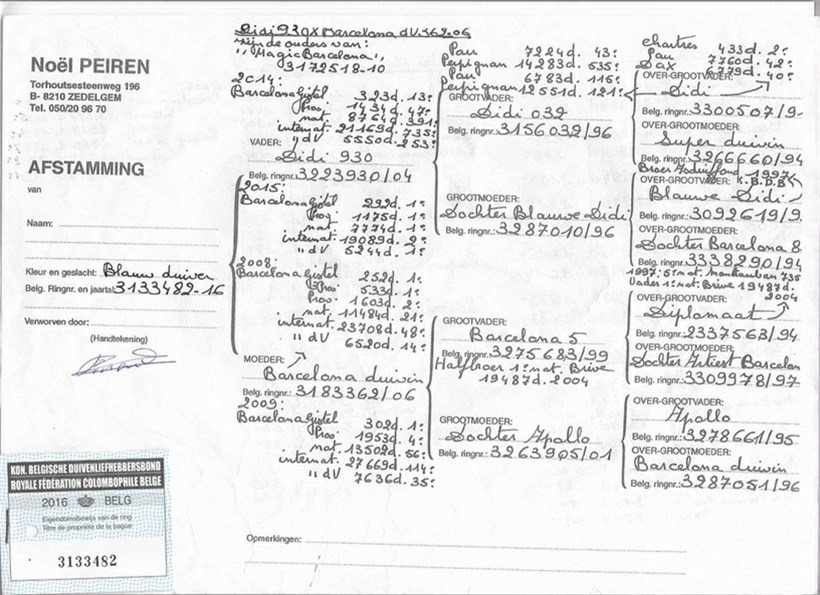 Noël PEIREN
Torhoutsesteenweg 196
B- 8210 ZEDELGEM
Tel. 050/29 96 70
AFSTAMMING
van
Naam:
Kleur en geslacht: Blauw duiver
Belg. Ringnr. en jaartal: 3133482-16
Verworven door:
(Handtekening)
KON. BELGISCHE DUIVENLIEFHEBBERSBOND
ROYALE FÉDÉRATION COLOMBOPHILE BELGE
2016 BELG
Eigendomsbewijs van de ring
Titre de propriété de la bague
3133482
Didi 930 x Barcelona dV.362-06
zijn de ouders van:
"Magic Barcelona"
3172518-10
2014:
Barcelona Gistel 323d. 13e
Prov. 1434d. 47e
nat. 8764d. 391e
internat. 21169d. 735e
" dV 5550d. 253e
VADER:
Didi 930
Belg. ringnr. 3223930/04
2015:
Barcelona Gistel 292d. 1e
Prov. 1175d. 1e
nat. 7774d. 1e
internat. 19089d. 2e
" dV 5244d. 1e
2008:
Barcelona Gistel 252d. 1e
533d. 1e
Prov. 1603d. 2e
nat 11484d. 21e
internat. 23708d. 48e
" dV 6520d. 14e
MOEDER:
Barcelona duivin
Belg. ringnr.: 3183362/06
2009:
Barcelona Gistel 302d. 1e
Prov. 1953d. 4e
nat. 13502d. 56e
internat. 27669d. 114e
" dV 7636d. 35e
Pau 7224d. 43e
Perpignan 14283d. 535e
Pau 6783d. 116e
Perpignan 12551d. 121e
GROOTVADER:
Didi 032
Belg. ringnr. 3156032/96
GROOTMOEDER:
Dochter Blauwe Didi
Belg. ringnr.: 3287010/96
GROOTVADER:
Barcelona 5
Belg. ringnr. 3275683/99
Halfbroer 1e nat. Brive
19487d. 2004
GROOTMOEDER:
Dochter Apollo
Belg. ringnr.: 3263905/01
Chartres 433d. 2e
Pau 7760d. 42e
Dax 6779d. 40e
OVER-GROOTVADER:
Didi
Belg. ringnr. 3300507/9
OVER-GROOTMOEDER:
Super duivin
Belg. ringnr. 3266660/94
Broer 1997
OVER-GROOTVADER: K.B.D.B
Blauwe Didi
Belg. ringnr.: 3092619/9
OVER-GROOTMOEDER:
Dochter Barcelona 8
Belg. ringnr. 3338290/94
1997: 5e nat. Montauban 735
Vader 1e nat. Brive 19487d.
2004
OVER-GROOTVADER:
Diplomaat
Belg. ringnr.: 2337563/94
OVER-GROOTMOEDER:
Dochter Artiest Barcelon
Belg. ringnr. 3309978/97
OVER-GROOTVADER:
Apollo
Belg. ringnr.: 3278661/95
OVER-GROOTMOEDER:
Barcelona duivin
Belg. ringnr.: 3287051/96
Opmerkingen: